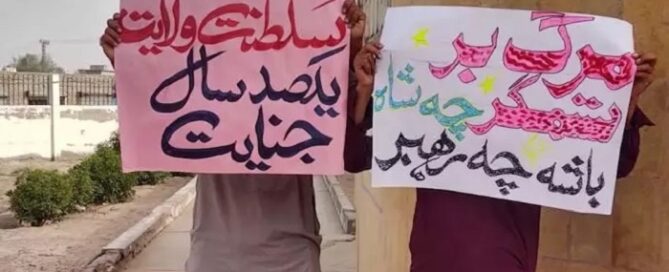 سلطنت ولایت
یکصد سال
جنایت
مرگ بر
ستمگر چه شاه
باشه چه رهبر